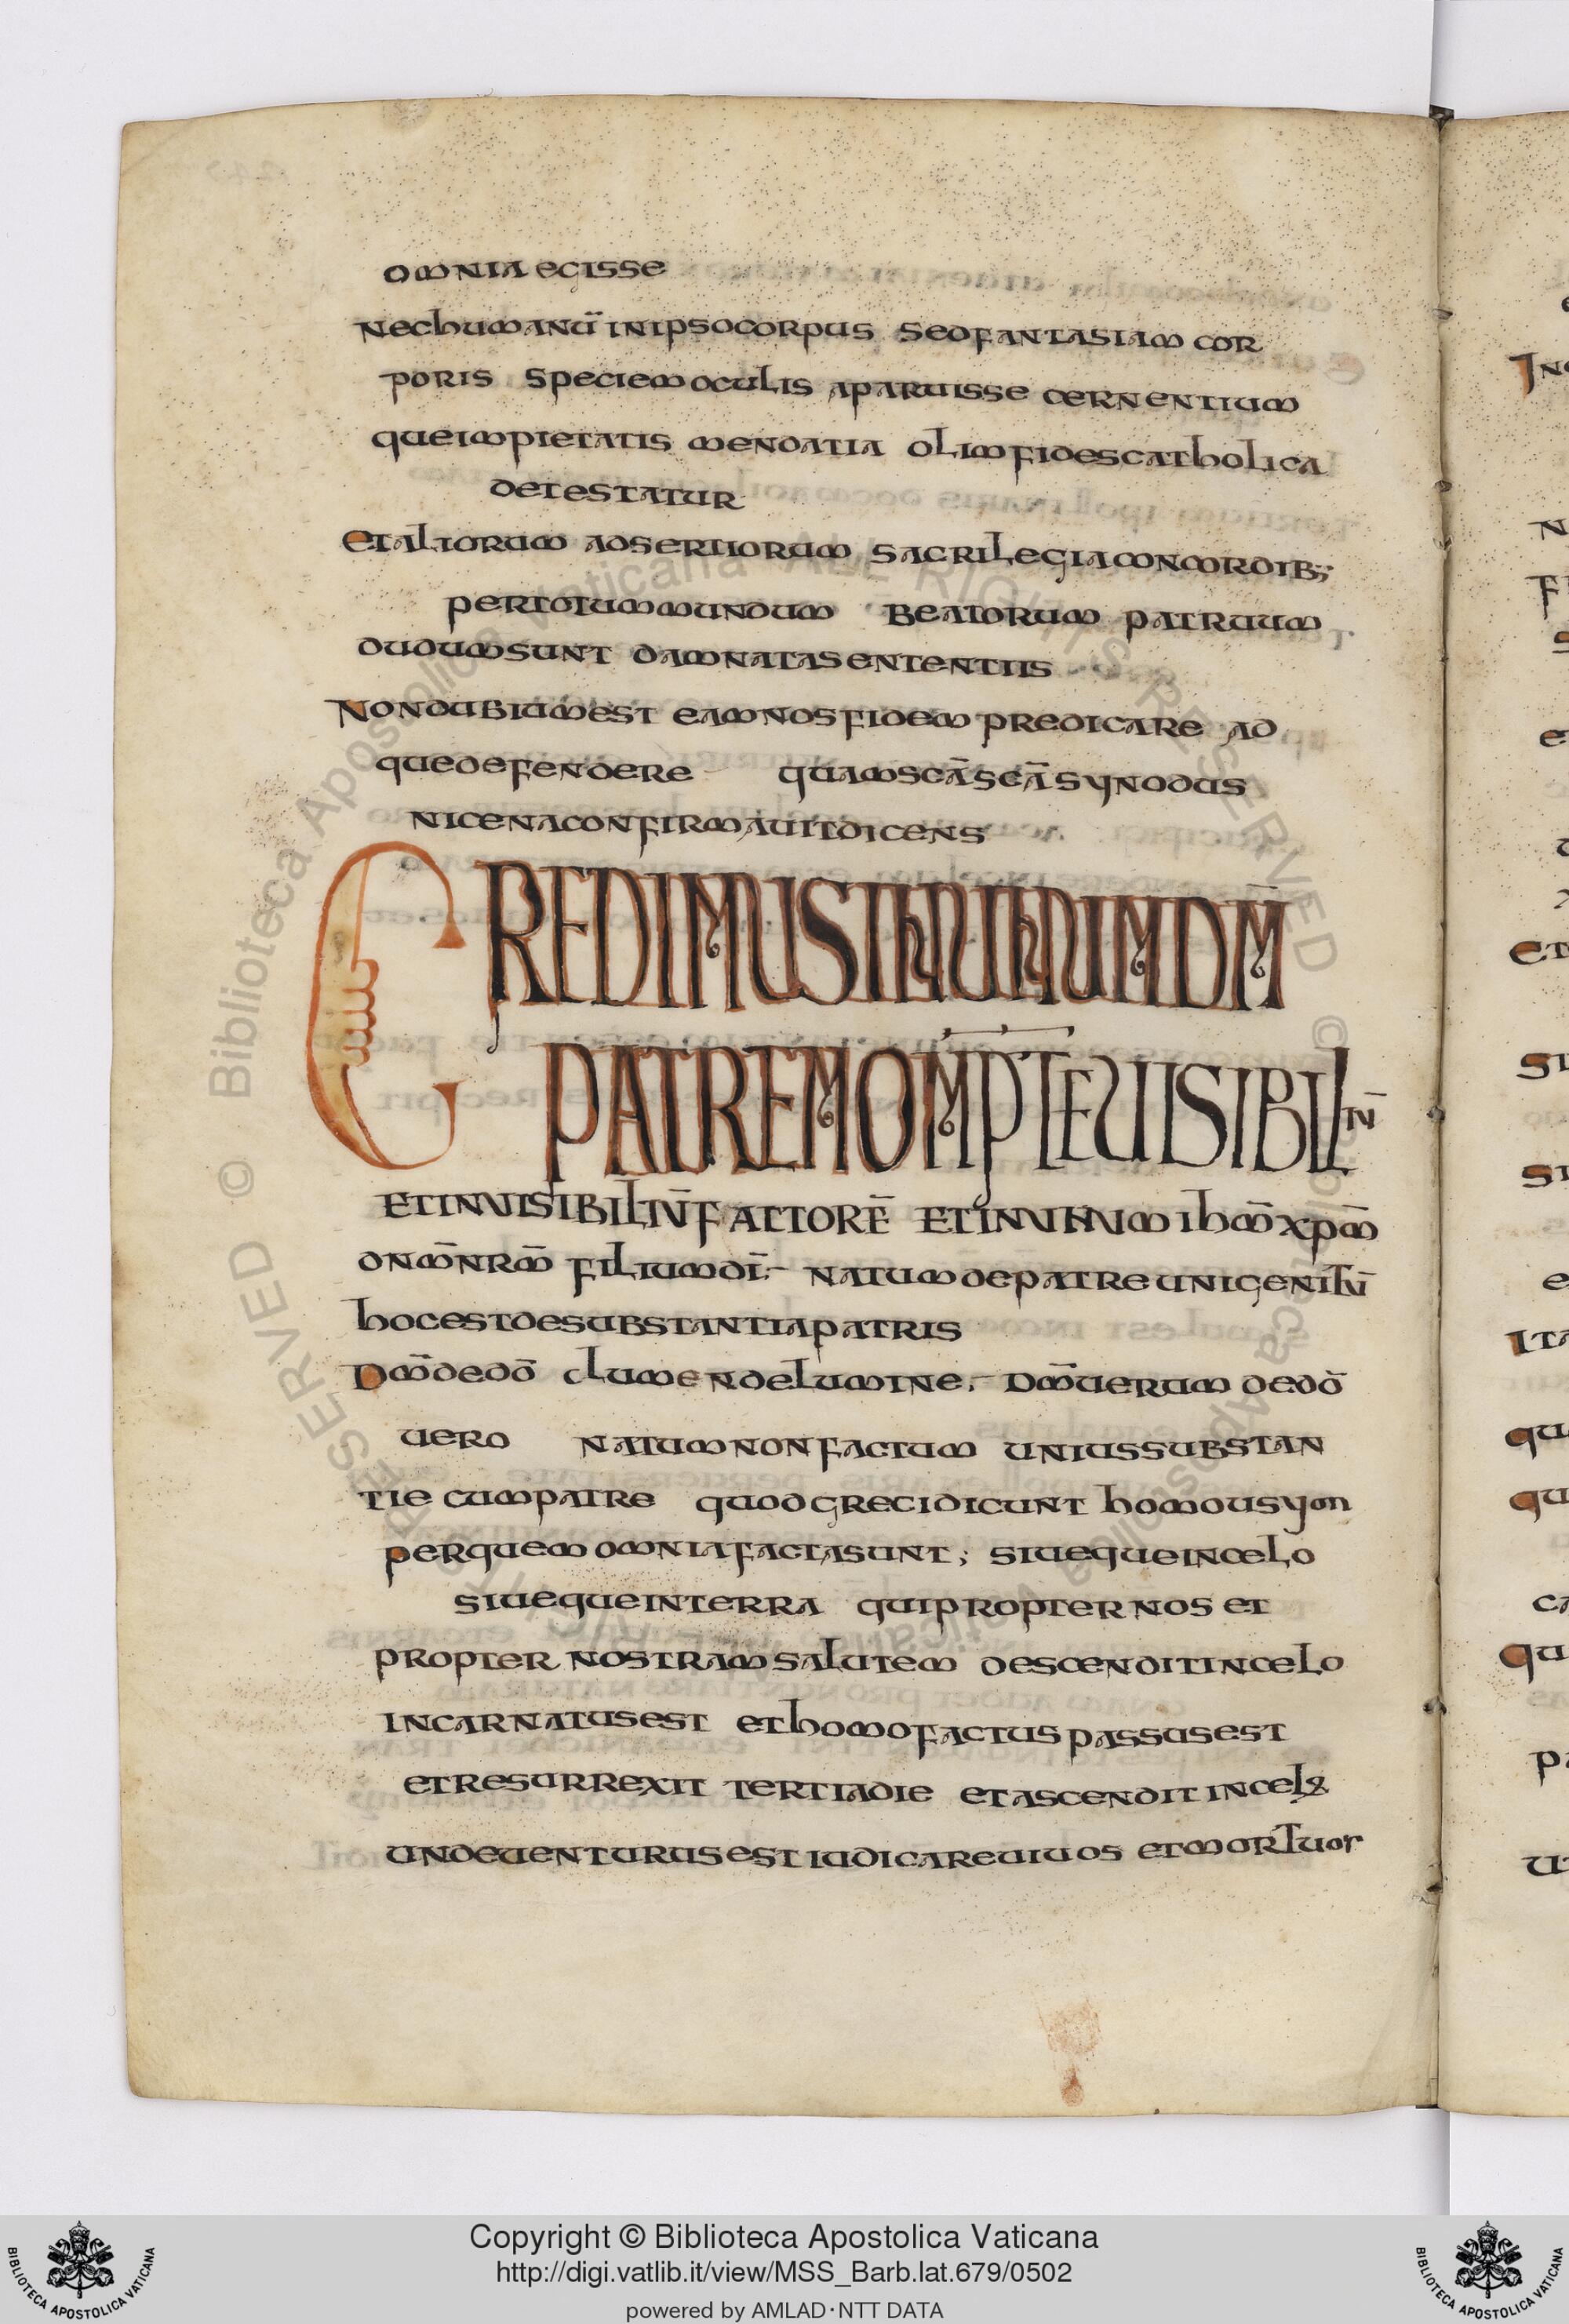 omnia egisse
nec humanū in ipso corpus sed fantasiam cor
poris speciem oculis aparuisse cernentium
que impietatis mendatia olim fides catholica
detestatur
et aliorum adsertiorum sacrilegia concordib;
per totum mundum beatorum patruum
dudum sunt damnata sententiis
Non dubium est eam nos fidem predicare ad
que defendere quam scā scā synodus
nicena confirmavit dicens
CREDIMUS IN UNUM DM̄
PATREM OM̄PTE VISIBIL
IŪ
ET INVISIBILIŪ FACTORĒ ET INUNUm ihm̄ xpm̄
dnm̄ nrm̄ filium dī natum de patre unigenitū
hoc est de substantia patris
Dm̄ de dō lumen de lumine. Dm̄ verum de dō
vero natum non factum unius substan
tie cum patre quod greci dicunt homousyon
per quem omnia facta sunt; sive que in celo
sive que in terra qui propter nos et
propter nostram salutem descendit in celo
incarnatus est et homo factus passus est
et resurrexit tertia die et ascendit in celos
unde venturus est iudicare vivos et mortuos
Copyright © Biblioteca Apostolica Vaticana
http://digi.vatlib.it/view/MSS_Barb.lat.679/0502
powered by AMLAD·NTT DATA
BIBLIOTECA APOSTOLICA VATICANA
BIBLIOTECA APOSTOLICA VATICANA